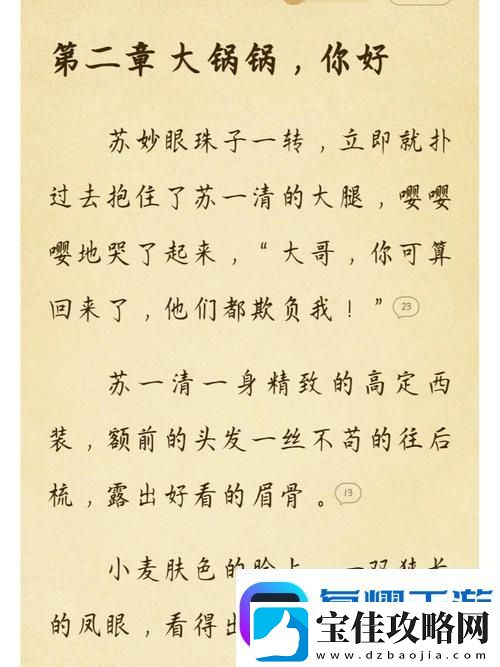 第二章 大锅锅，你好
苏妙眼珠子一转，立即就扑
过去抱住了苏一清的大腿，嘤嘤
嘤地哭了起来，“大哥，你可算
回来了，他们都欺负我！” 23
苏一清一身精致的高定西
装，额前的头发一丝不苟的往后
梳，露出好看的眉骨。 13
小麦肤色的脸上，一双狭长
的凤眼，看得出
宝佳攻略网
www.dzbaojia.com